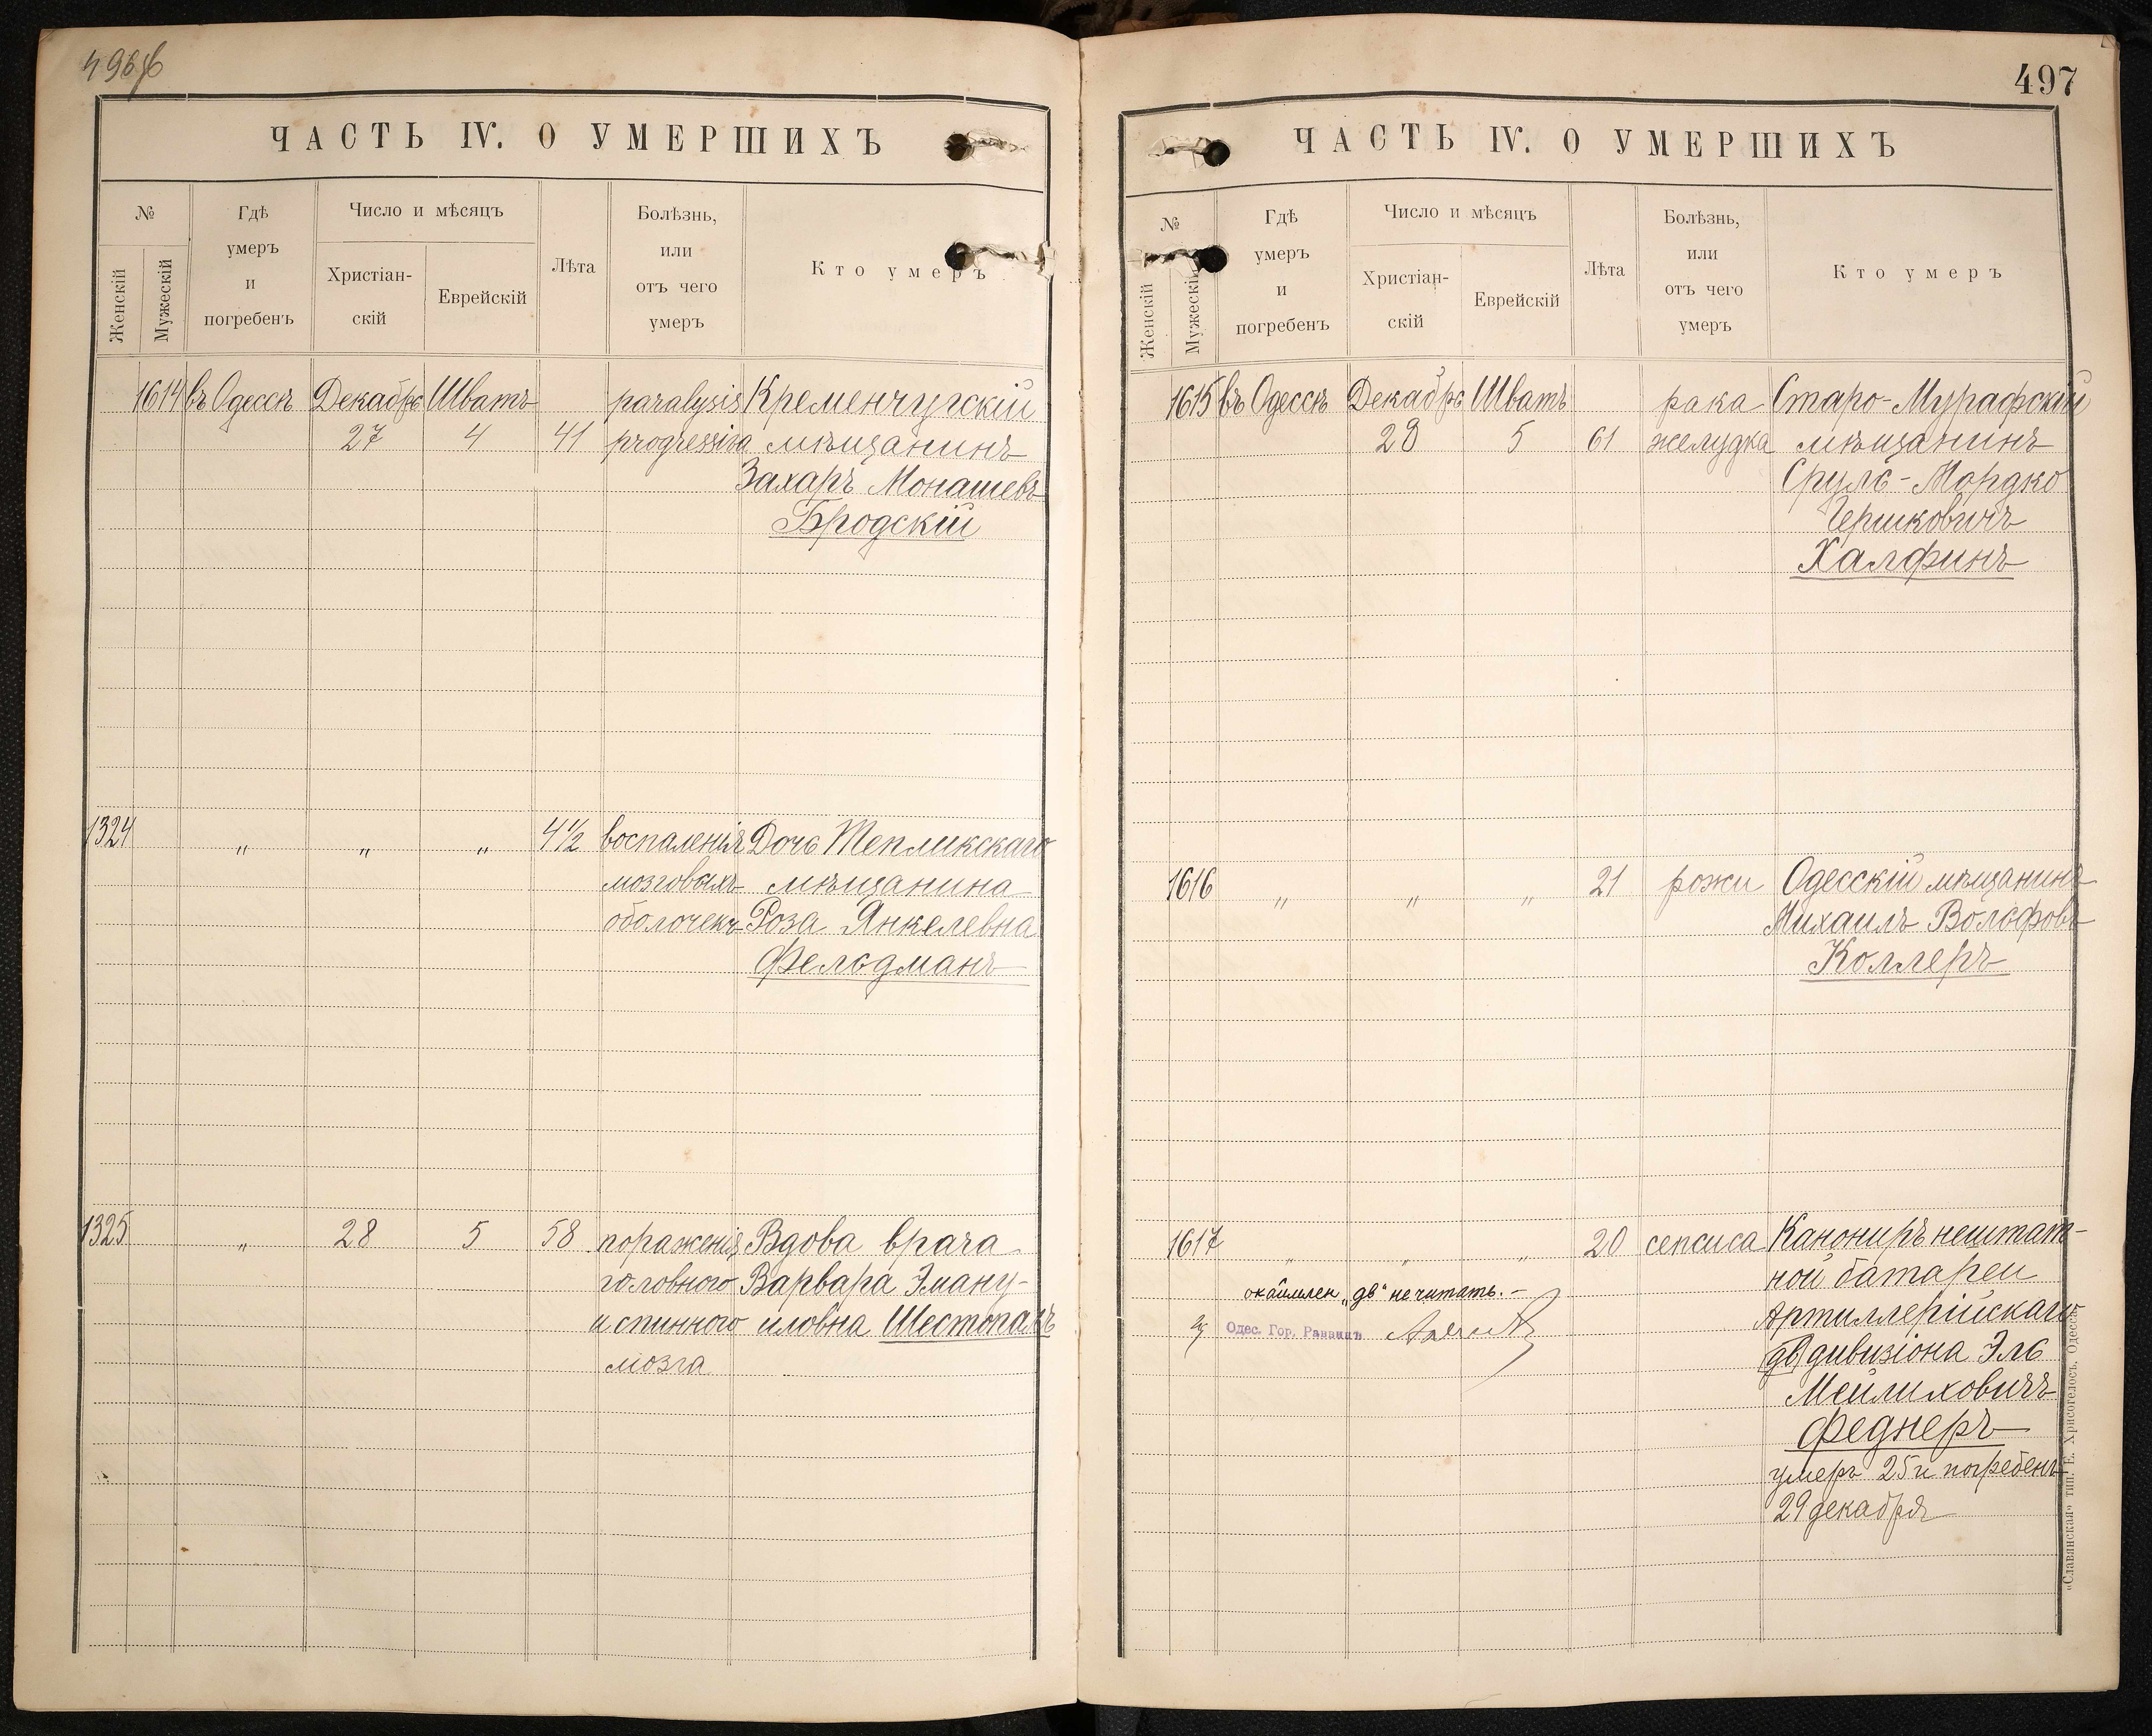 496 об
ЧАСТЬ IV. О УМЕРШИХЪ
№
Женскій
Мужескій
Гдѣ
умеръ
и
погребенъ
Число и мѣсяцъ
Христіан-
скій
Еврейскій
Лѣта
Болѣзнь,
или
отъ чего
умеръ
Кто умеръ
1614 въ Одессѣ Декабрь Шватъ paralysis Кременчугскій
27 4 41 progressiva мѣщанинъ
Захаръ Монашевъ
Бродскій
1324 " " " 4½ воспаленія Дочь Тепликскаго
мозговыхъ мѣщанина
оболочекъ Роза Янкелевна
Фельдманъ
1325 " 28 5 58 пораженія Вдова врача
головного Варвара Эману-
и спинного иловна Шестопалъ
мозга
497
ЧАСТЬ IV. О УМЕРШИХЪ
№
Женскій
Мужескій
Гдѣ
умеръ
и
погребенъ
Число и мѣсяцъ
Христіан-
скій
Еврейскій
Лѣта
Болѣзнь,
или
отъ чего
умеръ
Кто умеръ
1615 въ Одессѣ Декабрь Шватъ рака Старо-Мурафскій
28 5 61 желудка мѣщанинъ
Сруль-Мордко
Гершковичъ
Халфинъ
1616 " " " 21 рожи Одесскій мѣщанинъ
Михаилъ Вольфовъ
Коллеръ
1617 " " " 20 сепсиса Канониръ нештат-
ной батареи
окаймлен. „дв" не читать. —
Артиллерійскаго
Одес. Гор. Раввинъ
дв дивизіона Эль
Мейлиховичъ
Феднеръ
умеръ 25 и погребенъ
29 декабря
«Славянская» тип. Е. Хрисогелосъ. Одесса